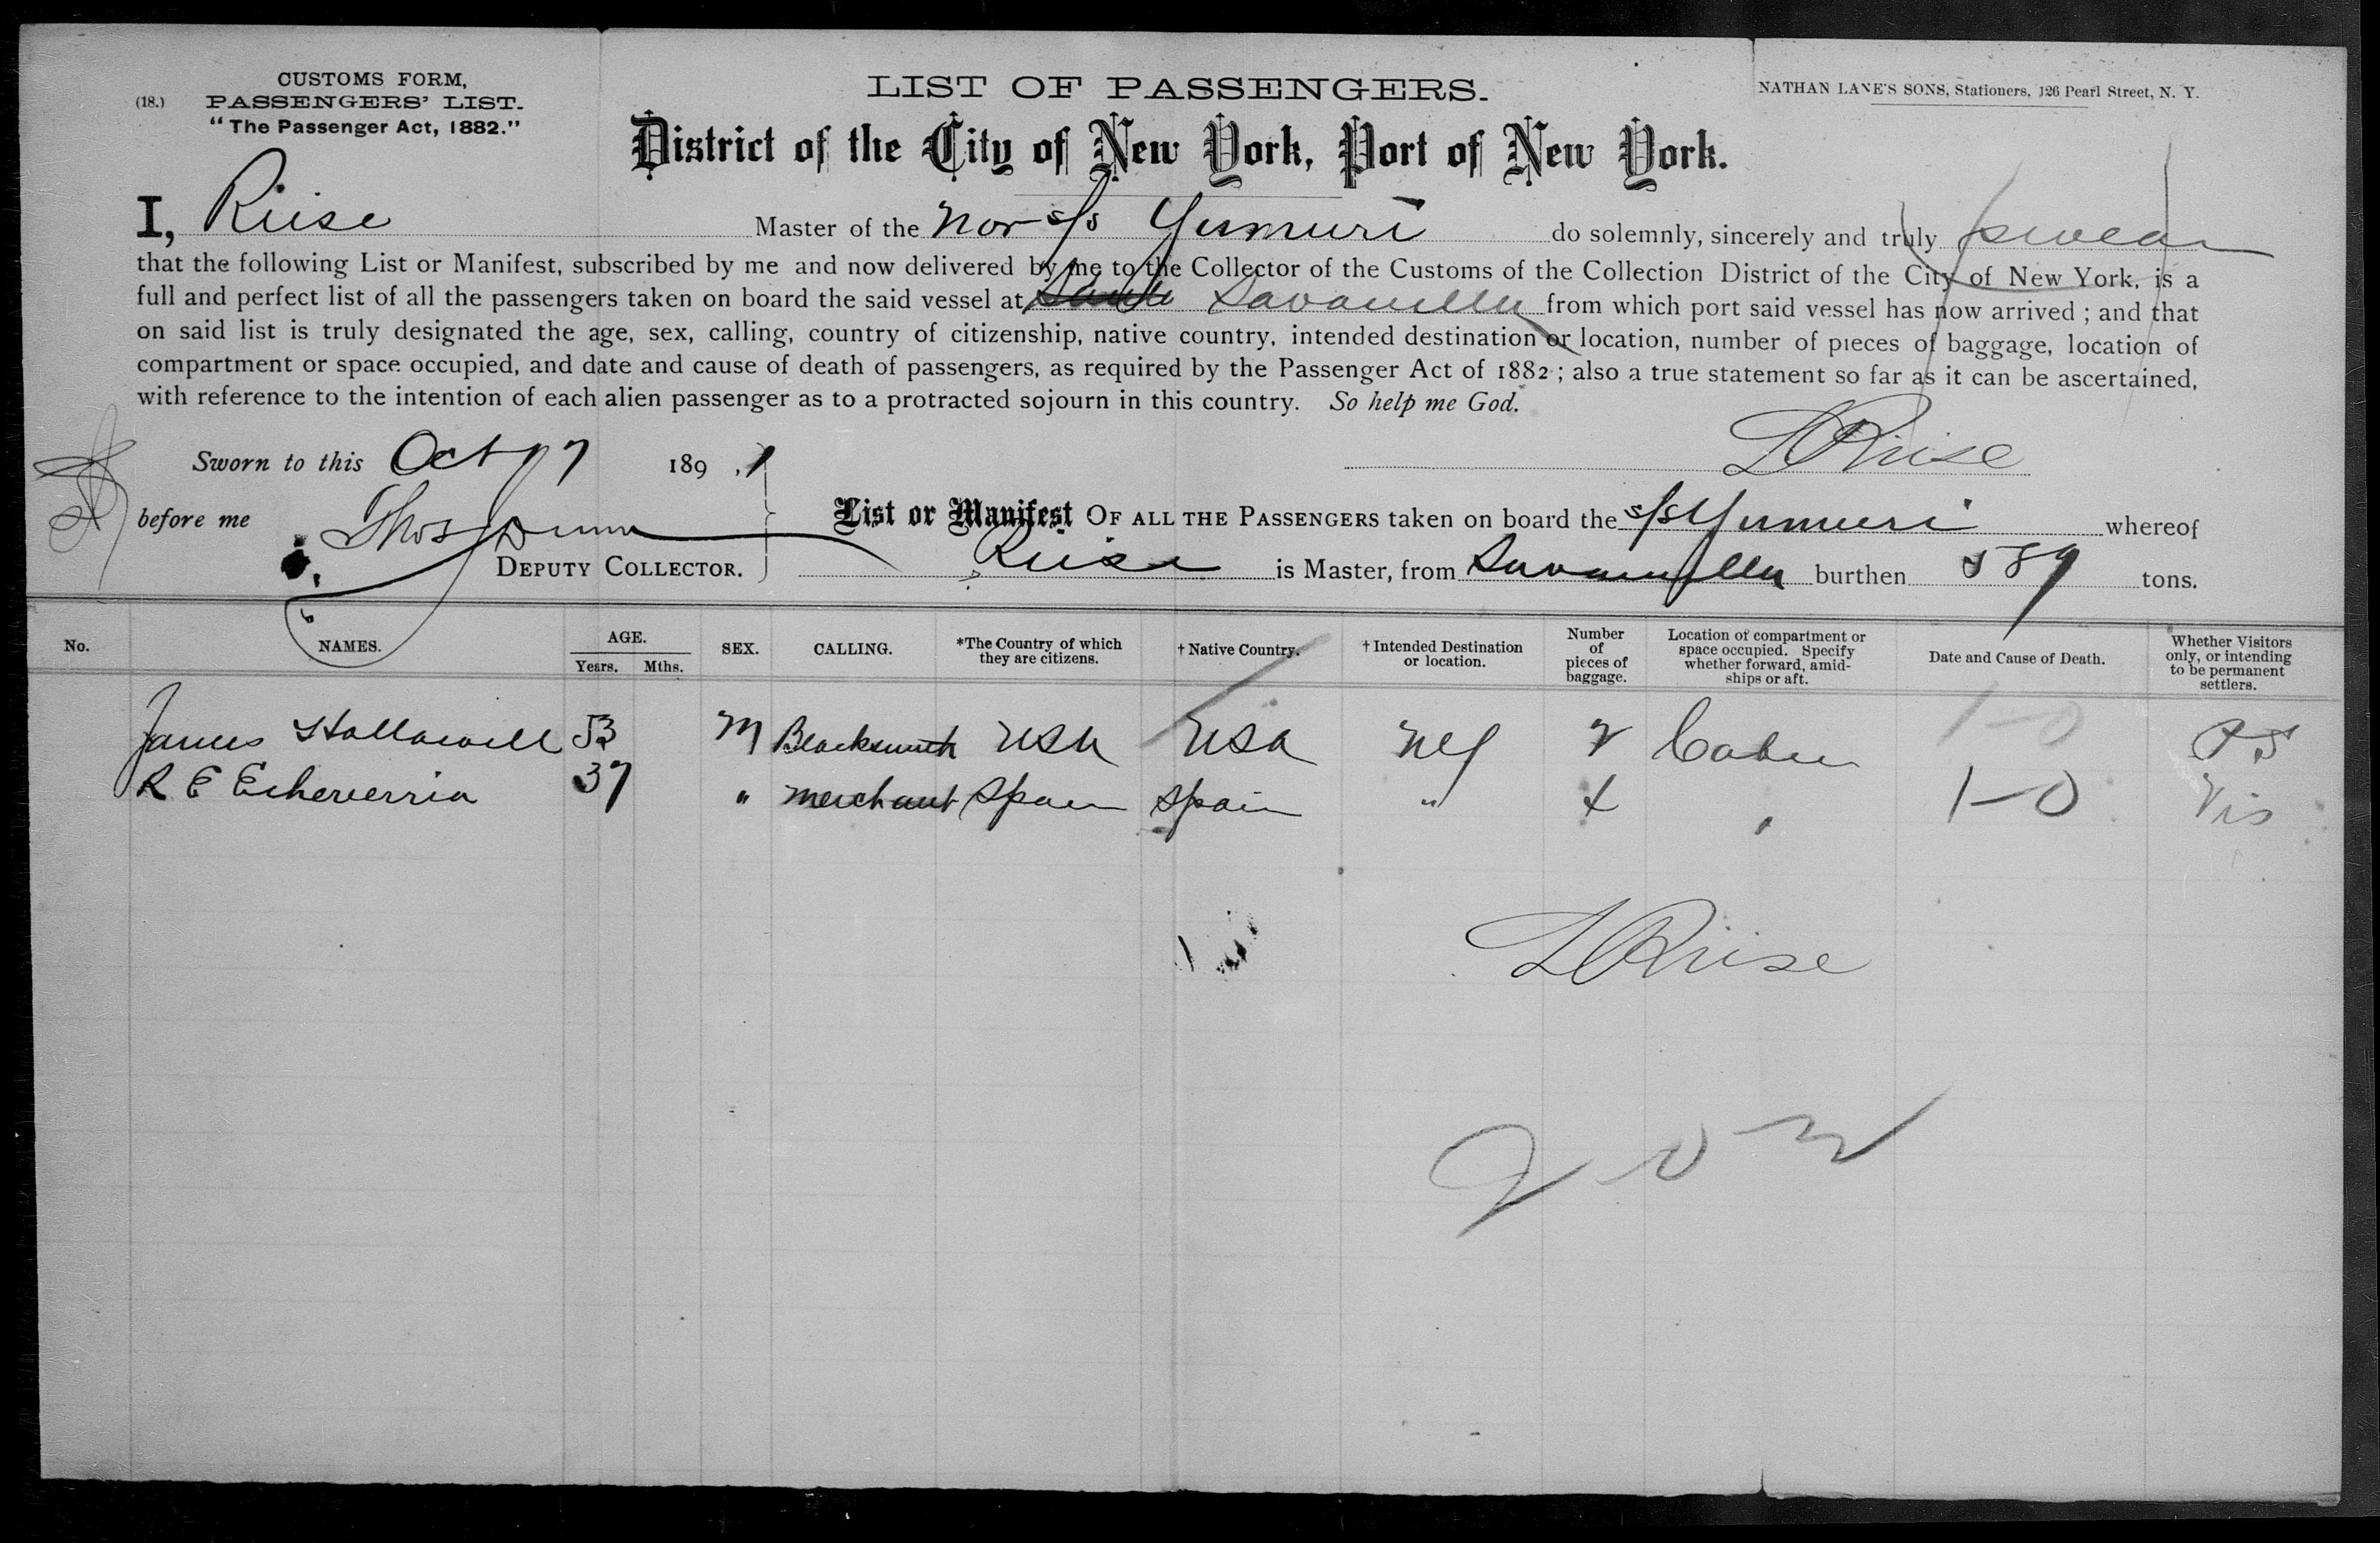 CUSTOMS FORM,
(18.) PASSENGERS' LIST.
"The Passenger Act, 1882."
LIST OF PASSENGERS.
NATHAN LANE'S SONS, Stationers, 126 Pearl Street, N. Y.
District of the City of New York, Port of New York.
I, Riise Master of the Nor s/s Yumuri do solemnly, sincerely and truly swear
that the following List or Manifest, subscribed by me and now delivered by me to the Collector of the Customs of the Collection District of the City of New York, is a
full and perfect list of all the passengers taken on board the said vessel at Savanilla from which port said vessel has now arrived ; and that
on said list is truly designated the age, sex, calling, country of citizenship, native country, intended destination or location, number of pieces of baggage, location of
compartment or space occupied, and date and cause of death of passengers, as required by the Passenger Act of 1882 ; also a true statement so far as it can be ascertained,
with reference to the intention of each alien passenger as to a protracted sojourn in this country. So help me God.
Sworn to this Oct 17 1891
L Riise
before me Thos Dunn
DEPUTY COLLECTOR.
List or Manifest OF ALL THE PASSENGERS taken on board the s/s Yumuri whereof
Riise is Master, from Savanilla burthen 589 tons.
No. NAMES. AGE. Years. Mths. SEX. CALLING. *The Country of which they are citizens. † Native Country. † Intended Destination or location. Number of pieces of baggage. Location of compartment or space occupied. Specify whether forward, amidships or aft. Date and Cause of Death. Whether Visitors only, or intending to be permanent settlers.
James Hallowell 53 M Blacksmith USA USA NY 2 Cabin 1-0 PS
R E Echeverria 37 " merchant Spain Spain " 1-0 Vis
L Riise